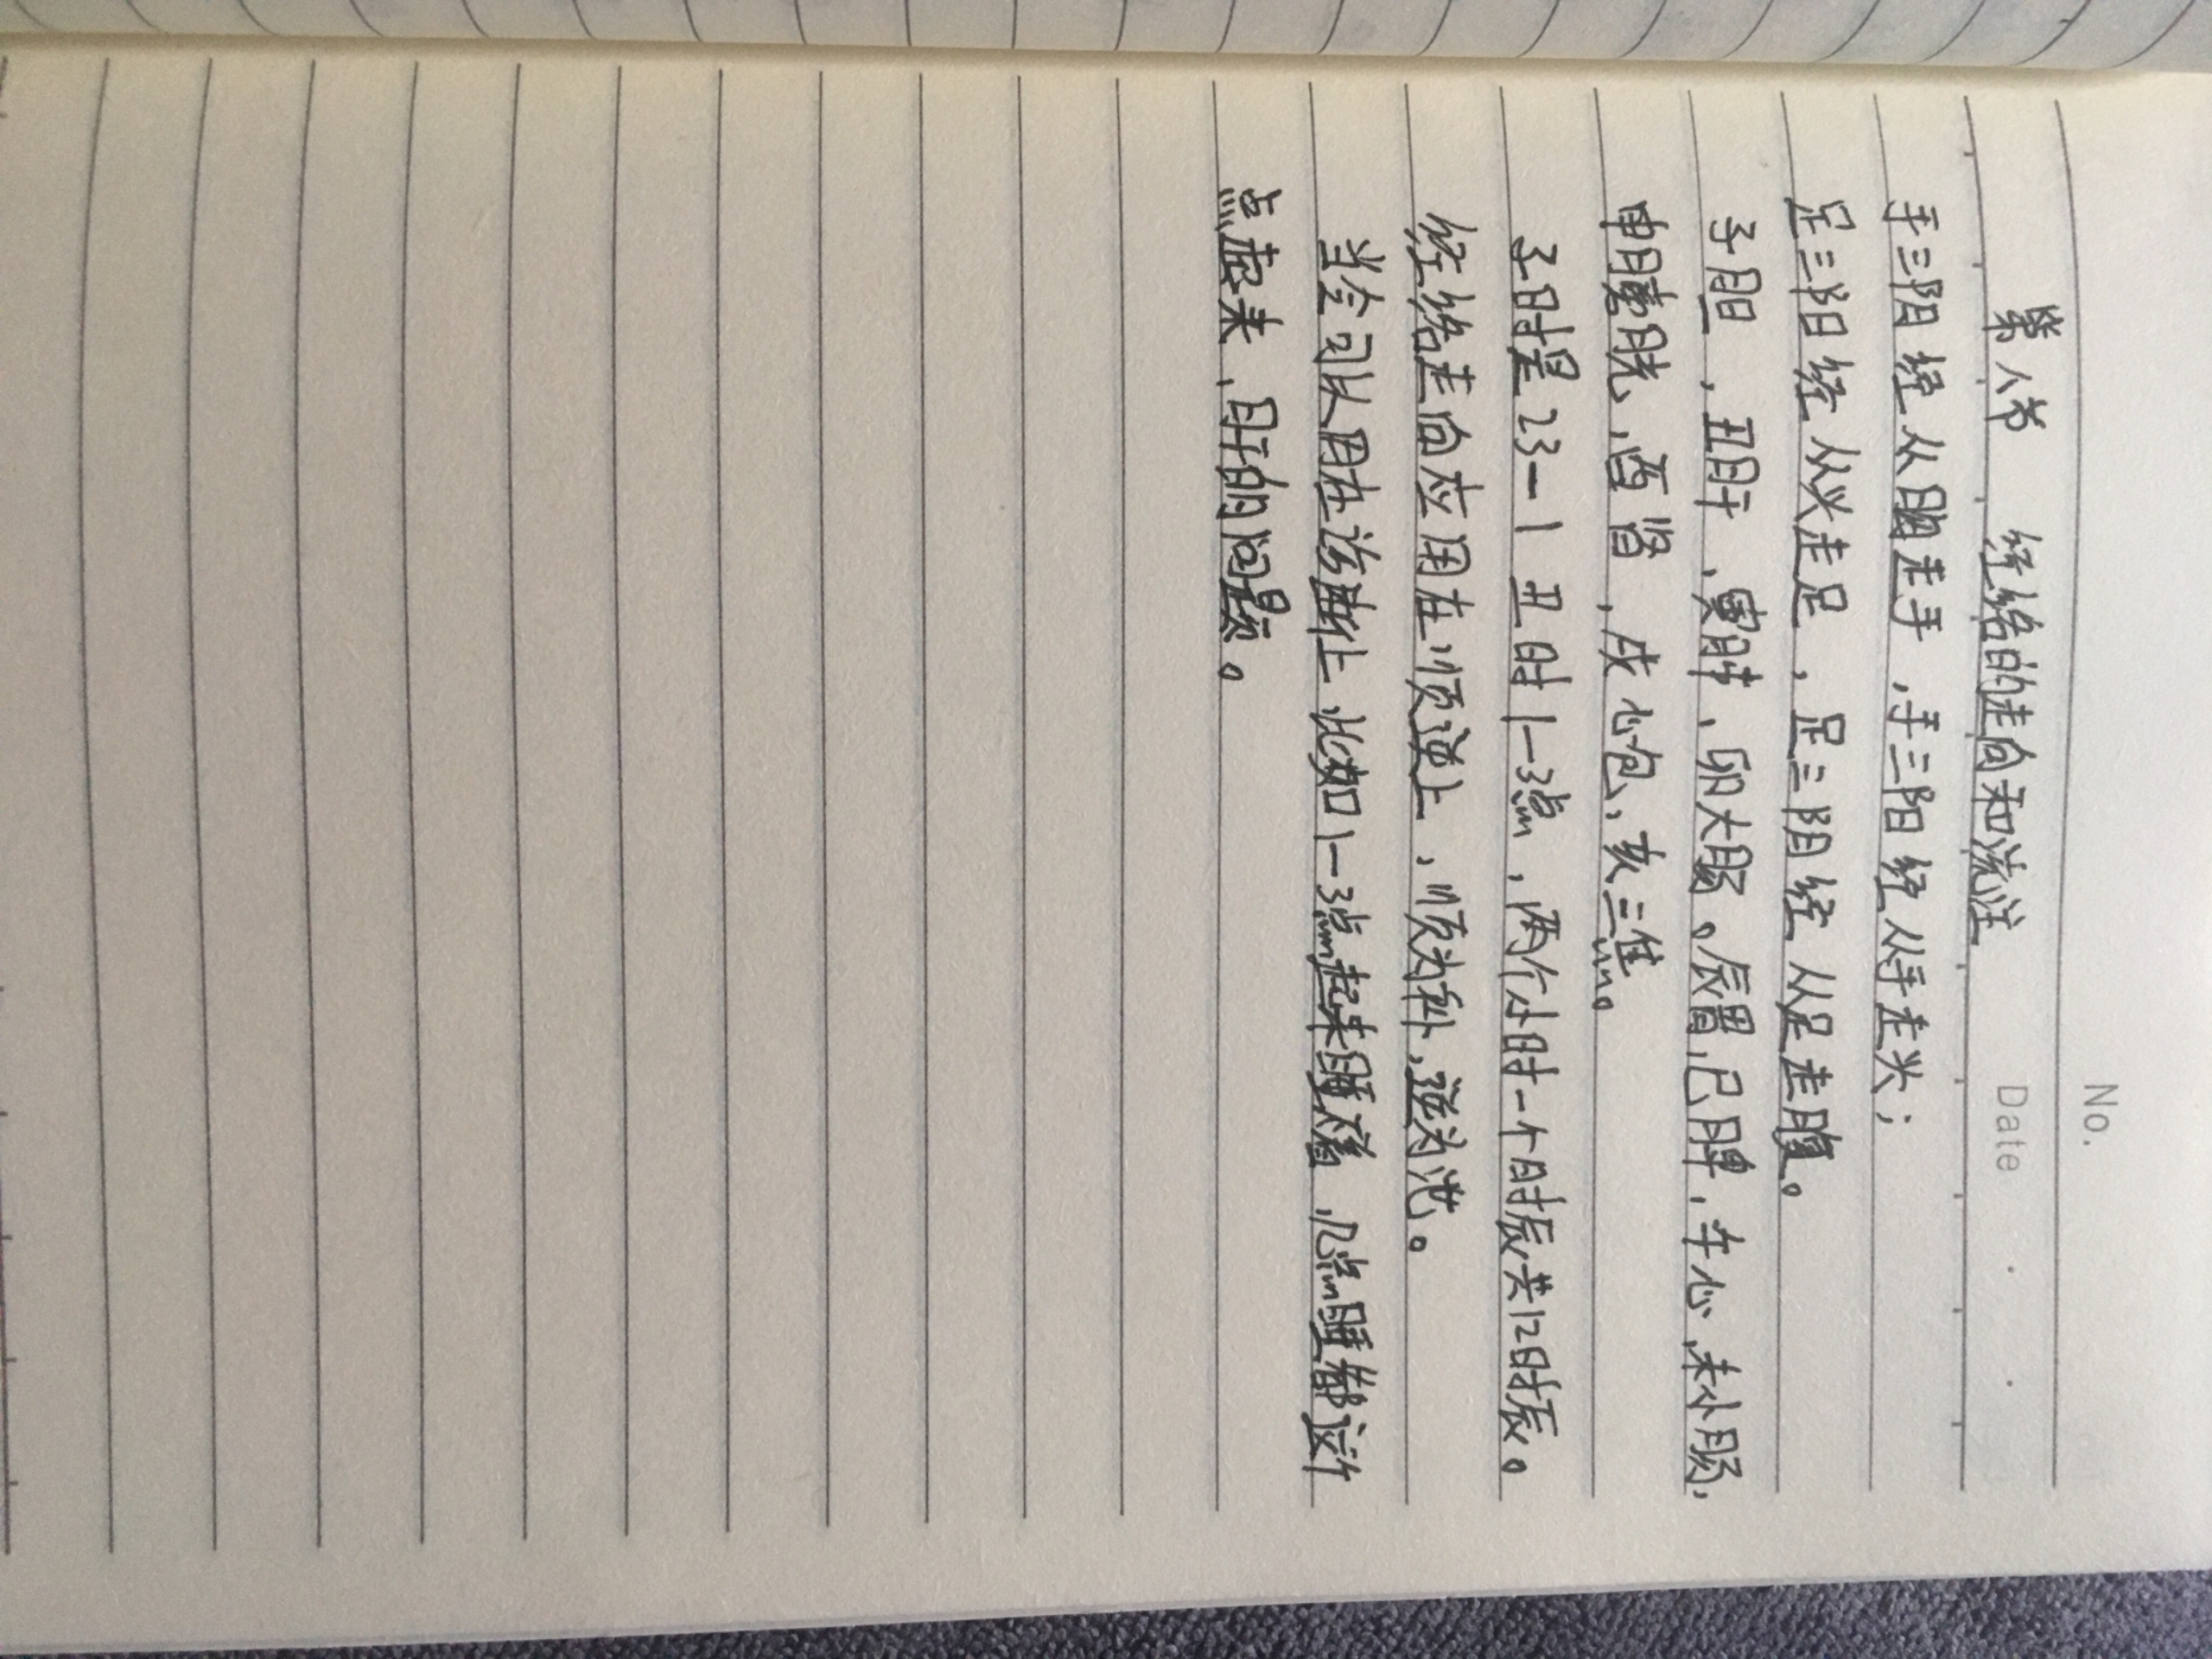 No.
Date
第八节 经络的走向和流注
手三阳经从胸走手，手三阳经从手走头；
足三阳经从头走足，足三阴经从足走腹。
子胆，丑肝，寅肺，卯大肠。辰胃，巳脾，午心，未小肠，
申膀胱，酉肾，戌心包，亥三焦。
子时是23—1 丑时1—3点，两个小时一个时辰共12时辰。
经络走向应用在顺逆上，顺为补，逆为泄。
当令可以用在诊断上，比如1—3点起来睡不着，几点睡都这个
点起来，肝的问题。